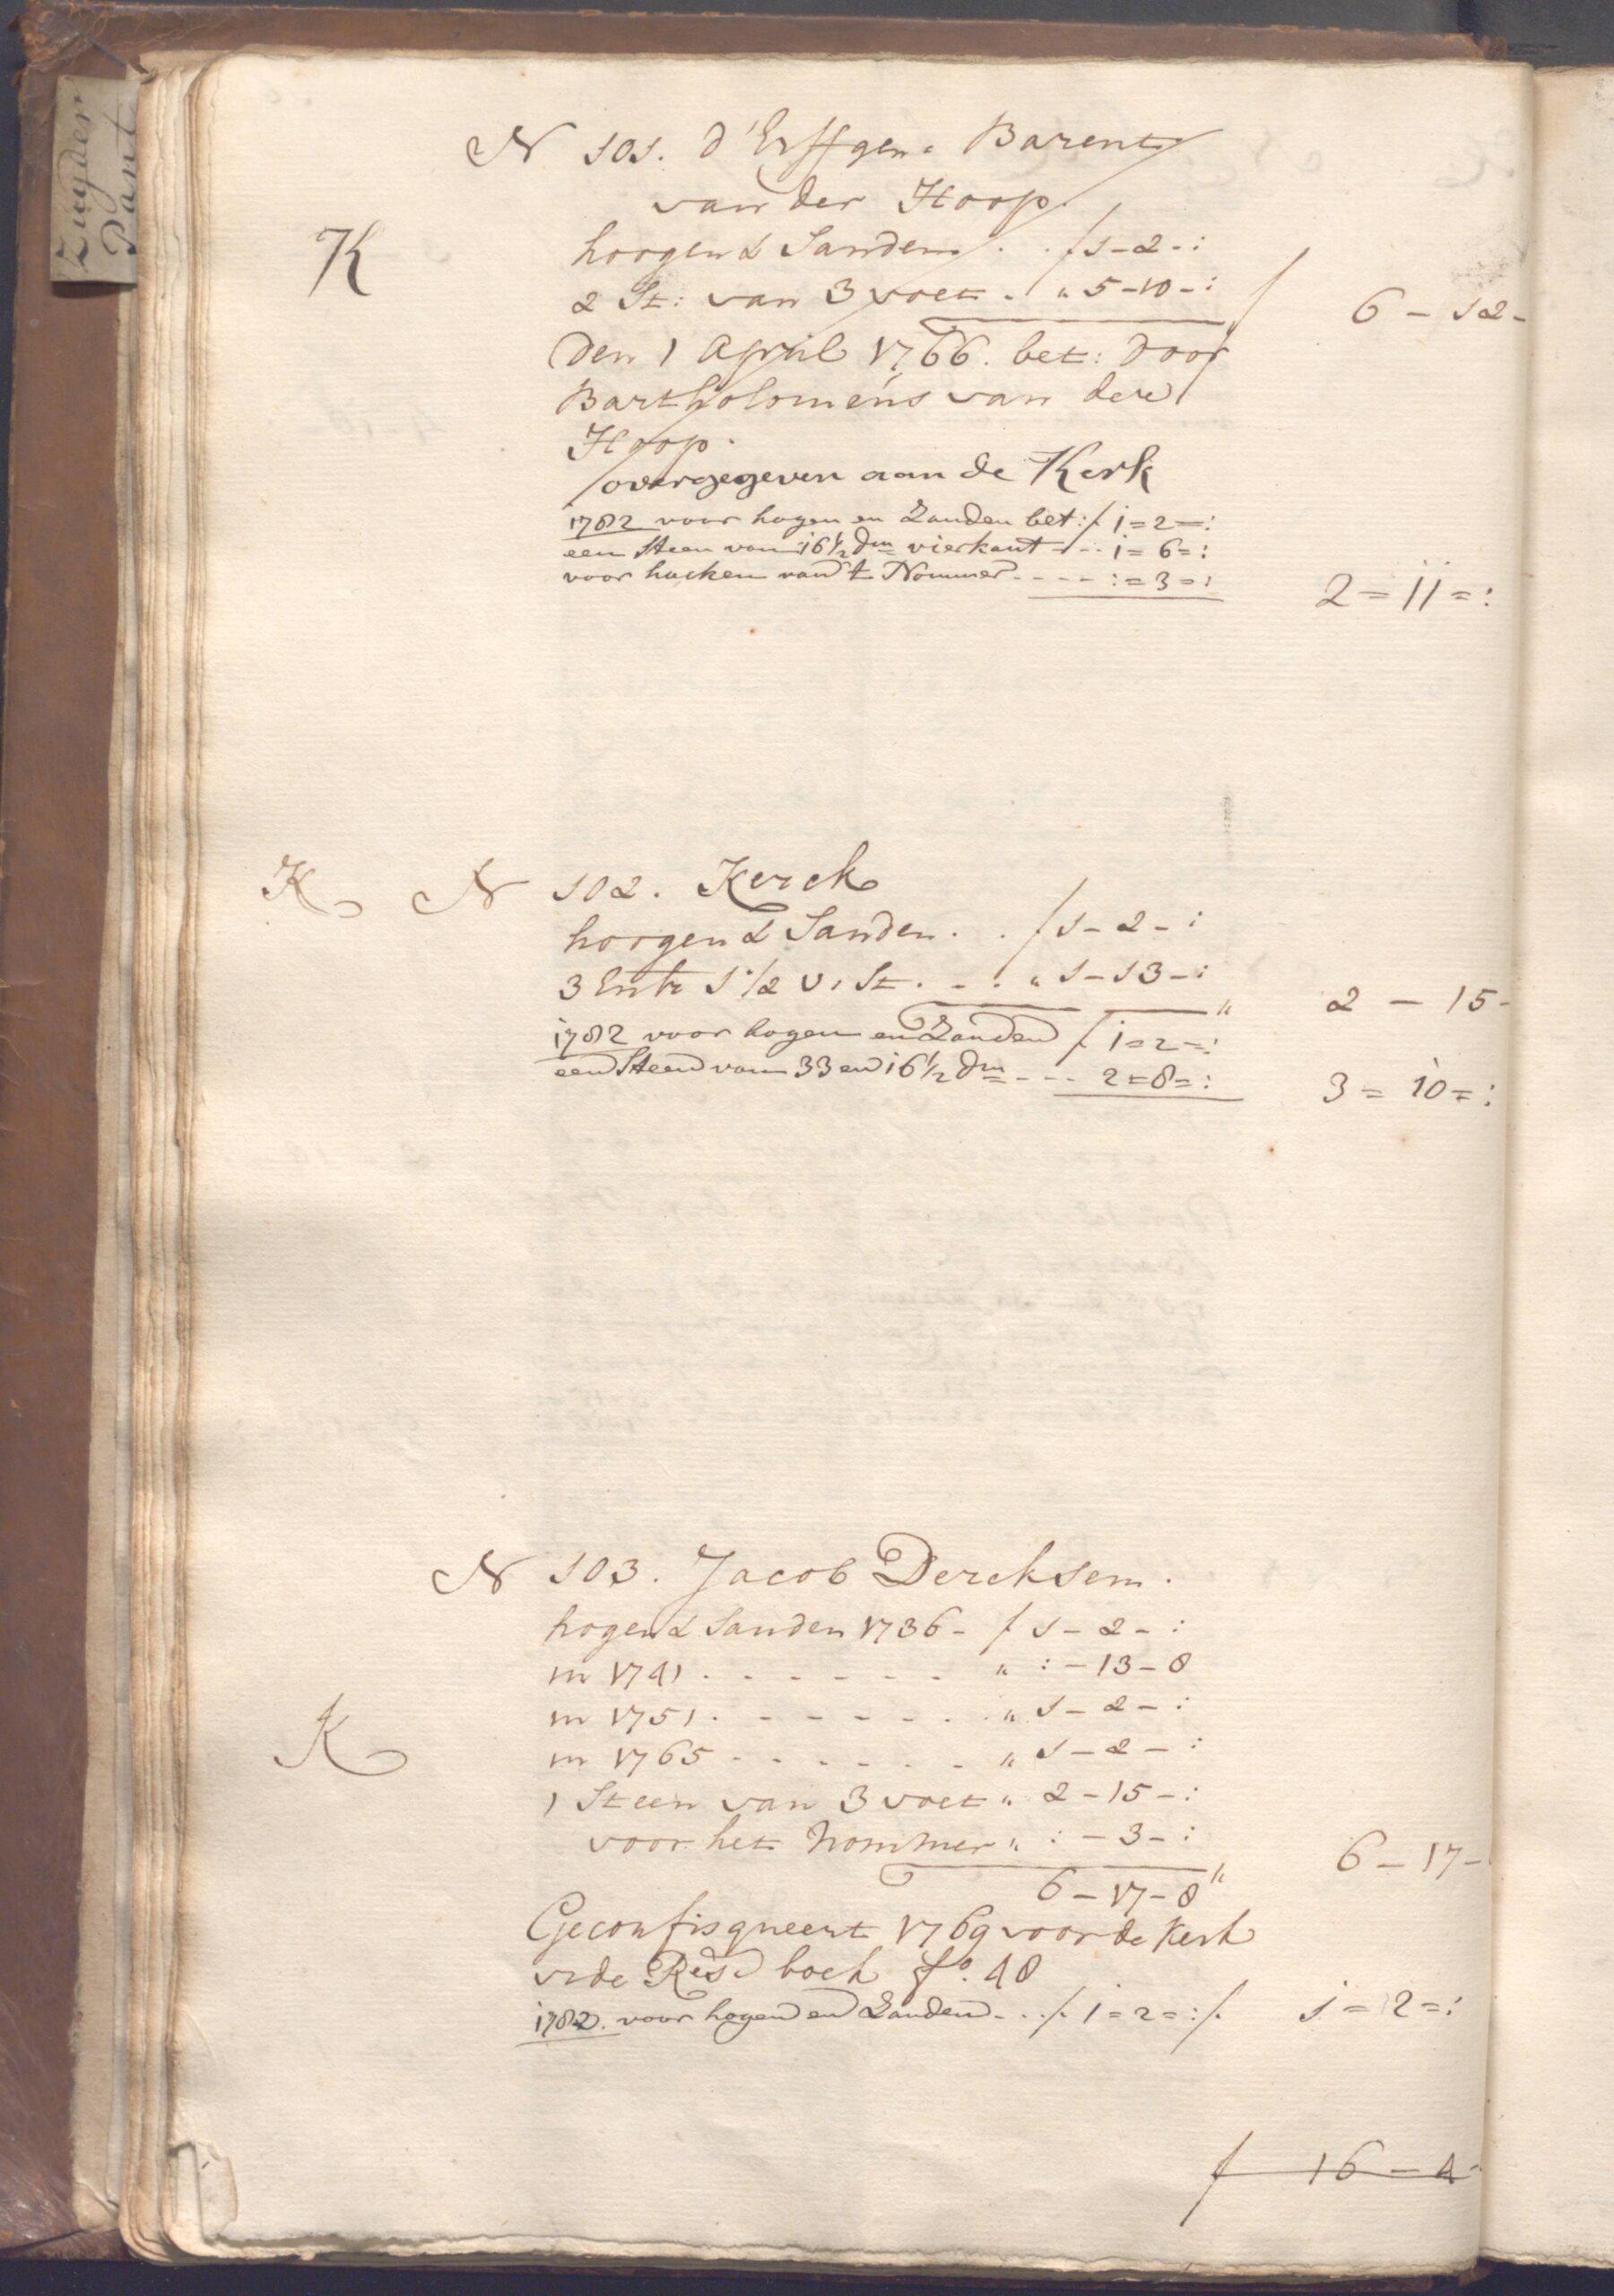 Zuyder
Pant
N 101. d'Erffgen: Barent
van der Hoop.
K
hoogen & Sanden . . f 1-2-:
2 St: van 3 voet . " 5-10-:
f 6 - 12-
Den 1 April 1766. bet: door
Bartholomeús van der
Hoop.
overgegeven aan de Kerk
1782 voor hogen en Zanden bet: f 1=2=:
een Steen van 16½ dm vierkant - - 1=6=:
voor hacken van 't Nommer - - - - :=3=:
2=11=:
K N 102. Kerck
hoogen & Sanden . . f 1-2-:
3 Entr 1½ v. St. - . " 1-13-:
" 2 - 15-
1782 voor hogen en Zanden f 1=2=:
een Steen van 33 en 16½ dm - - - 2=8=:
3=10=:
N 103. Jacob Dercksen.
hogen & Sanden 1736 - f 1-2-:
in 1741 . - - - - - - " :-13-8
in 1751 . - - - - - . " 1-2-:
K
in 1765 - - - - - - " 1-2-:
1 Steen van 3 voet " 2-15-:
voor het Nommer " :-3-:
6 - 17-
6-17-8 "
Geconfisqueert 1769 voor de Kerk
vide Res. boek fo. 48
1782. voor hogen en Zanden - . . f 1=2=: f.
1=2=:
f 16 - 4-